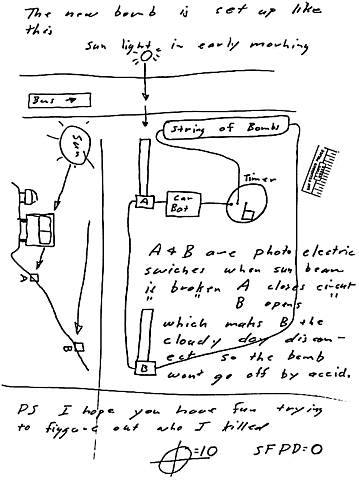 The new bomb is set up like
this
sun light in early morning
Bus →
Sun
String of Bombs
Timer
A
Car
Bat
A & B are photo electric
swiches when sun beam
is broken A closes circut
" " B opens "
which maks B the
cloudy day discon-
ect so the bomb
wont go off by accid.
A
B
B
PS I hope you have fun trying
to figgure out who I killed
=10 SFPD=0